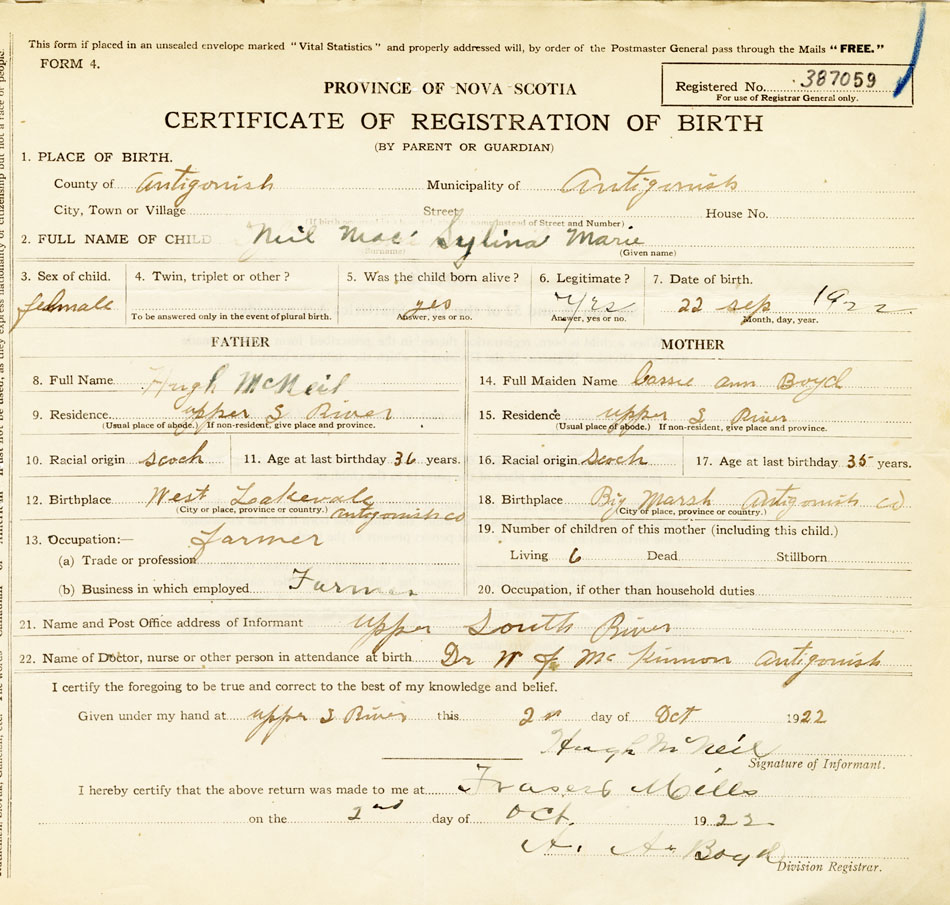 This form if placed in an unsealed envelope marked "Vital Statistics" and properly addressed will, by order of the Postmaster General pass through the Mails "FREE."
FORM 4.
Registered No. 387059
For use of Registrar General only.
PROVINCE OF NOVA SCOTIA
CERTIFICATE OF REGISTRATION OF BIRTH
(BY PARENT OR GUARDIAN)
1. PLACE OF BIRTH.
County of Antigonish Municipality of Antigonish
City, Town or Village Street House No.
2. FULL NAME OF CHILD Neil Mac Sylina Marie
(Given name)
3. Sex of child. 4. Twin, triplet or other? 5. Was the child born alive? 6. Legitimate? 7. Date of birth.
yes Yes 22 sep 1922
To be answered only in the event of plural birth. Answer, yes or no. Answer, yes or no. Month, day, year.
FATHER MOTHER
8. Full Name Hugh McNeil 14. Full Maiden Name Cassie ann Boyd
9. Residence upper S River 15. Residence upper S River
(Usual place of abode.) If non-resident, give place and province. (Usual place of abode.) If non-resident, give place and province.
10. Racial origin scoch 11. Age at last birthday 36 years. 16. Racial origin scoch 17. Age at last birthday 35 years.
12. Birthplace West Loakevale Antigonish co 18. Birthplace Big Marsh Antigonish co
(City or place, province or country.) (City or place, province or country.)
19. Number of children of this mother (including this child.)
13. Occupation:— Farmer
(a) Trade or profession Living 6 Dead Stillborn
(b) Business in which employed Farmer 20. Occupation, if other than household duties
21. Name and Post Office address of Informant upper South River
22. Name of Doctor, nurse or other person in attendance at birth Dr W J McKinnon Antigonish
I certify the foregoing to be true and correct to the best of my knowledge and belief.
Given under my hand at upper S River this 2 day of Oct 1922
Hugh McNeil
Signature of Informant.
I hereby certify that the above return was made to me at Frasers Mills
on the 2nd day of Oct. 1922
A. A. Boyd
Division Registrar.